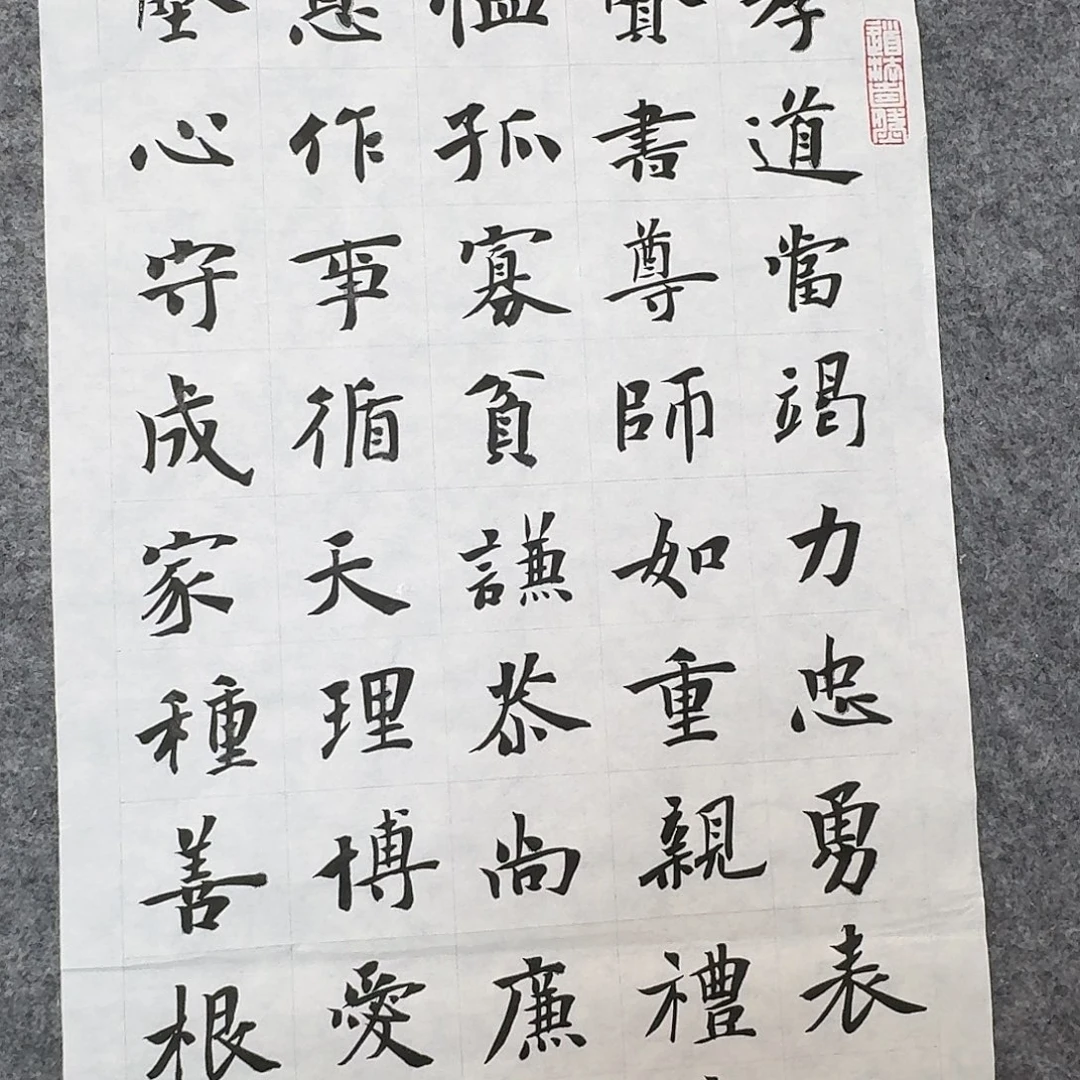 孝道當竭力忠勇表
賢書尊師如重親禮
恤孤寡貧謙恭尚廉
恩作事循天理博愛
堅心守成家種善根